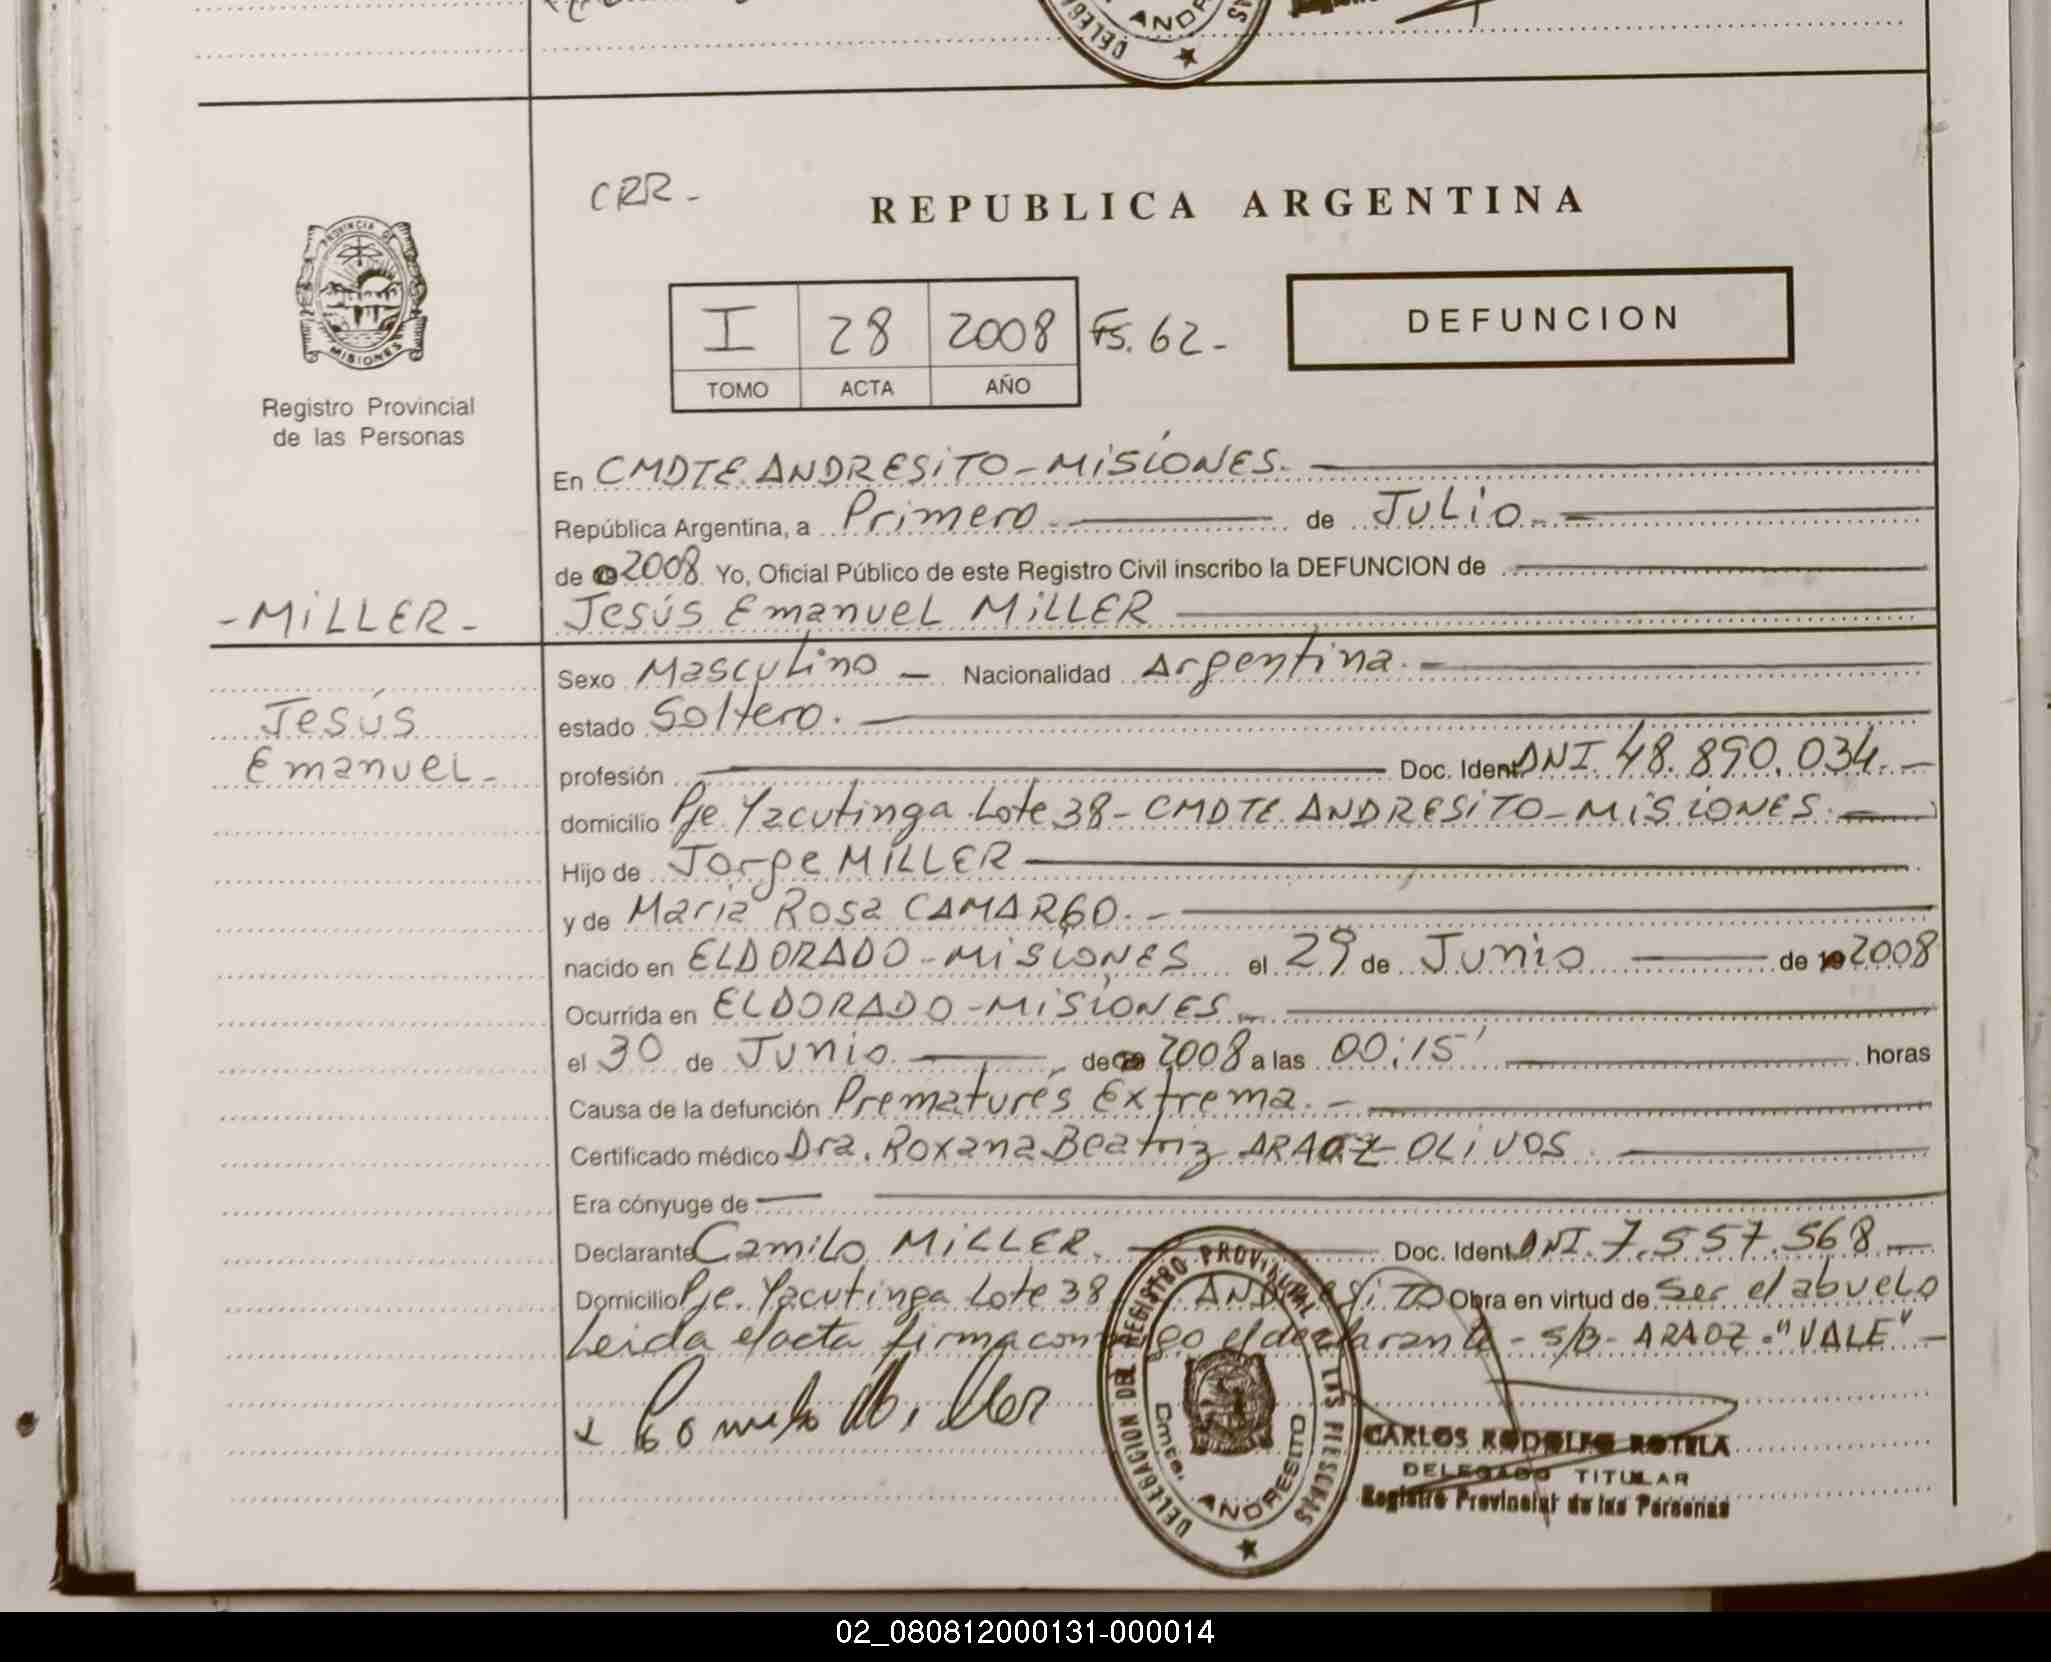 CRR-
REPUBLICA ARGENTINA
PROVINCIA DE
MISIONES
Registro Provincial
de las Personas
I 28 2008 Fs. 62-
TOMO ACTA AÑO
DEFUNCION
En CMDTE ANDRESiTO-MiSiONES.
República Argentina, a Primero. de Julio.-
de 2008 Yo, Oficial Público de este Registro Civil inscribo la DEFUNCION de
-MiLLER-
Jesús Emanuel MiLLER
Jesús
Emanuel-
Sexo Masculino - Nacionalidad Argentina.-
estado Soltero.
profesión Doc. Ident DNI. 48.890.034.-
domicilio Pje Yacutinga Lote 38-CMDTE ANDRESiTO-MiSiONES.
Hijo de Jorge MiLLER
y de María Rosa CAMARGO.-
nacido en ELDORADO-MiSiONES el 29 de Junio de 2008
Ocurrida en ELDORADO-MiSiONES.
el 30 de Junio. de 2008 a las 00:15' horas
Causa de la defunción Prematurés Extrema.-
Certificado médico Dra. Roxana Beatriz ARAOZ OLiVOS
Era cónyuge de
Declarante Camilo MiLLER. Doc. Ident DNI. 7.557.568-
Domicilio Pje. Yacutinga Lote 38 ANDRESiTO Obra en virtud de ser el abuelo
Leida el acta firma conmigo el declarante-S/B-ARAOZ-"VALE"-
x Camilo Miller
DELEGACION DEL REGISTRO PROVINCIAL DE LAS PERSONAS
Cmte. ANDRESITO
CARLOS RODOLFO ROTELA
DELEGADO TITULAR
Registro Provincial de las Personas
02_080812000131-000014